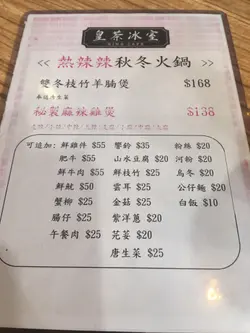 皇茶冰室
KING CAFE
<< 熱辣辣秋冬火鍋 >>
雙冬枝竹羊腩煲 $168
秘製麻辣雞煲 $138
可追加: 鮮雞件 $55 響鈴 $35 粉絲 $20
肥牛 $55 山水豆腐 $20 河粉 $20
鮮牛肉 $55 鮮枝竹 $25 烏冬 $20
鮮魷 $50 雲耳 $25 公仔麵 $20
蟹柳 $25 金菇 $25 白飯 $10
腸仔 $25 紫洋蔥 $20
午餐肉 $25 芫荽 $20
唐生菜 $25